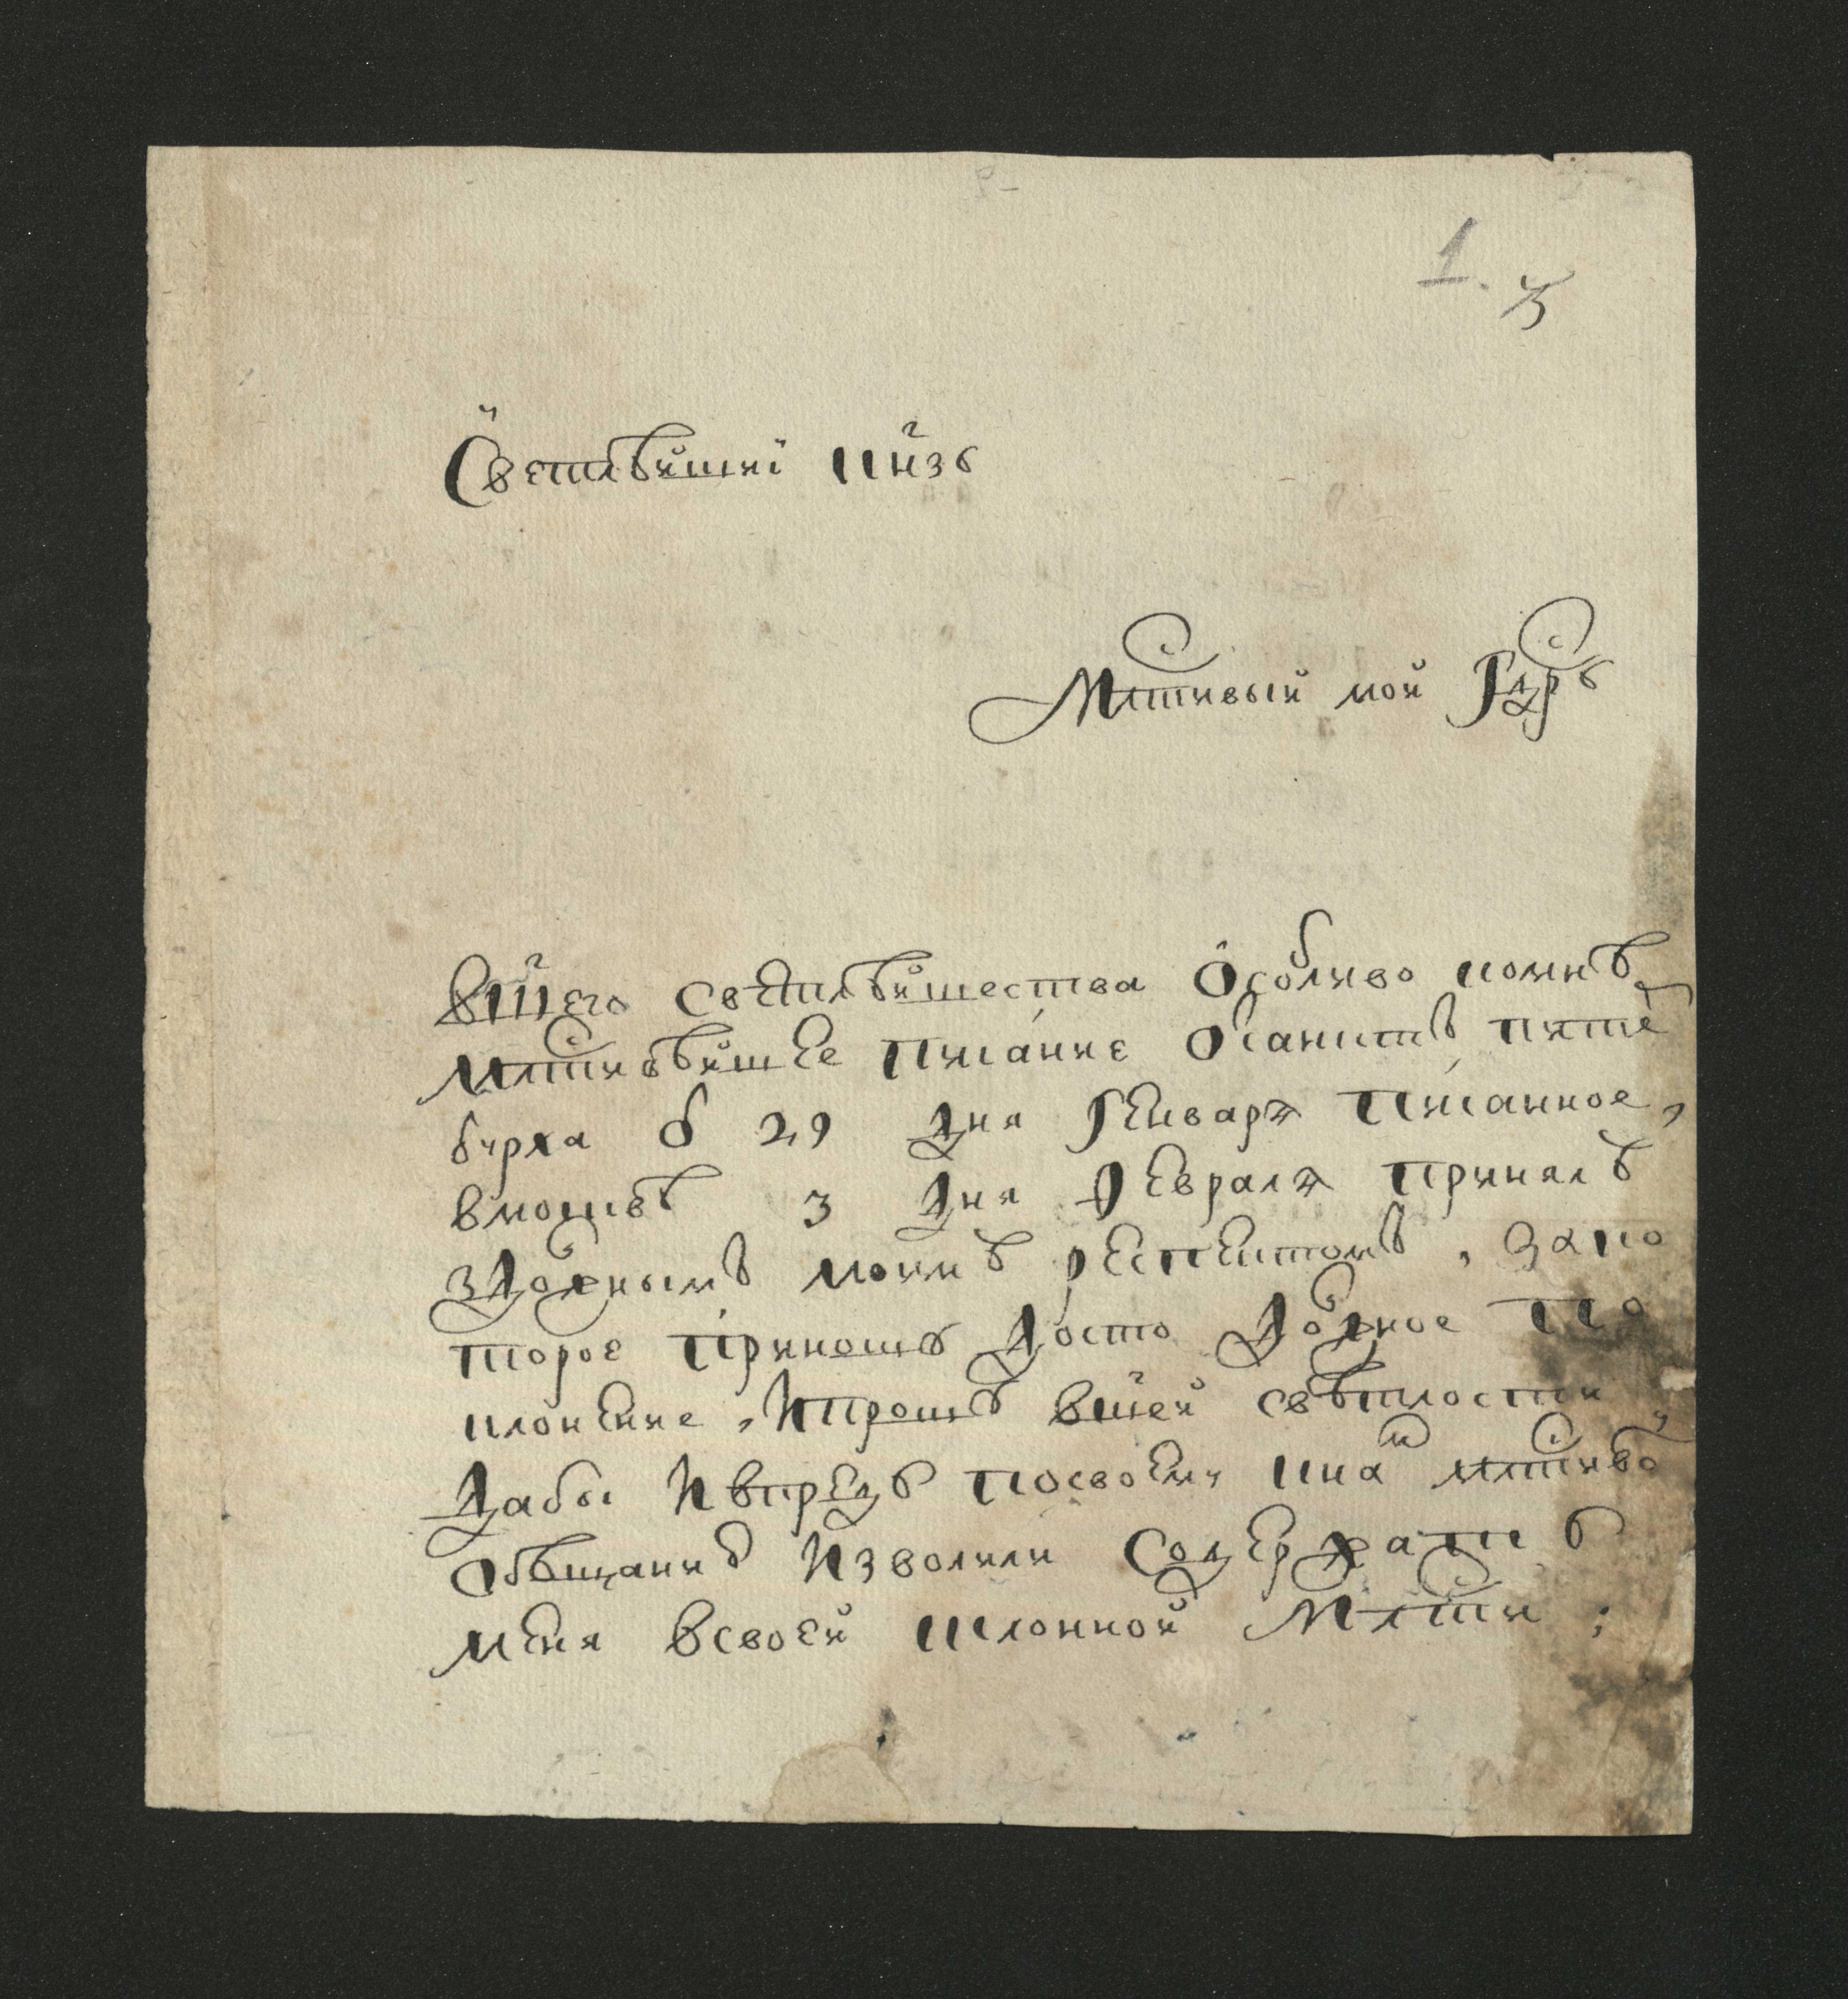 1. 3
Светлѣйшиї кн҃зь
Млстивыи мои Гдрь
Вш҃его светлѣйшества Ѡсобливо комнѣ
млстивѣйшее писание Ѡсанктъ пите
бурха ѿ 29 дня Генваря писанное,
вмошвѣ 3 дня Февраля принялъ
здолжнымъ моимъ респектомъ, Зако
торое приношъ досто должное по
клонение, Ипрошъ вш҃ей свѣтлости
дабы Ивпредь посвоему кна млстиво
Ѡбѣщанию Изволили Содержать
меня Всвоей склонной Млсти ;